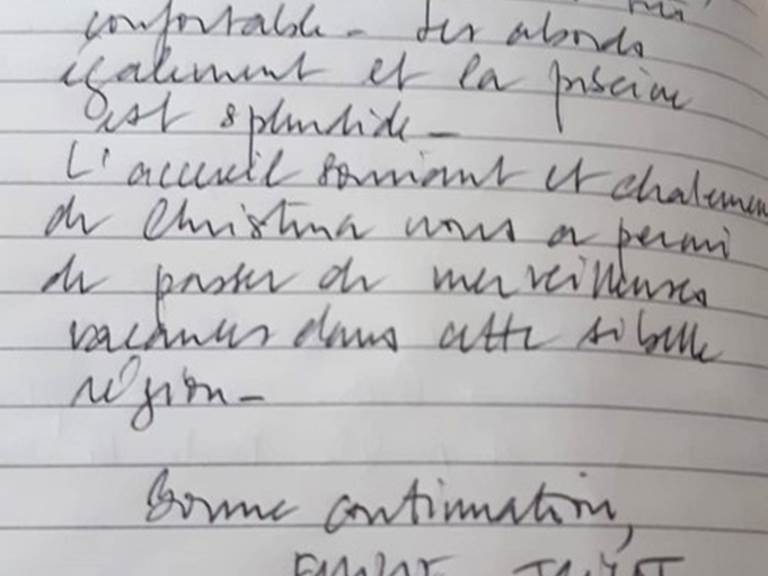 confortable - Les abords
également et la piscine
est splendide -
L'accueil souriant et chaleureux
de Christina nous a permi
de passer de merveilleuses
vacances dans cette si belle
région -
Bonne continuation,